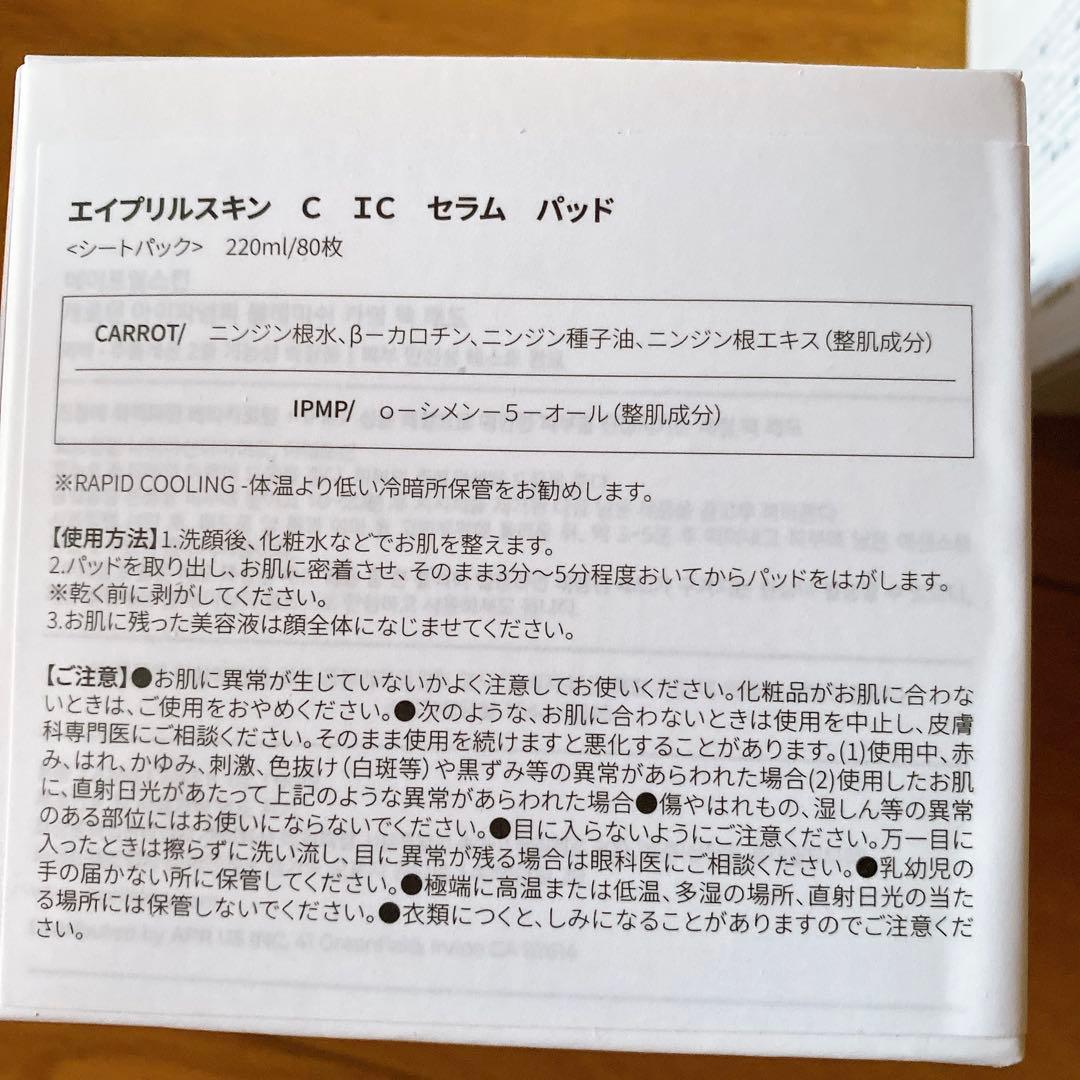 エイプリルスキン　C　IC　セラム　パッド
<シートパック>　220ml/80枚
CARROT/　ニンジン根水、β－カロチン、ニンジン種子油、ニンジン根エキス（整肌成分）
IPMP/　o－シメン－５－オール（整肌成分）
※RAPID COOLING -体温より低い冷暗所保管をお勧めします。
【使用方法】1.洗顔後、化粧水などでお肌を整えます。
2.パッドを取り出し、お肌に密着させ、そのまま3分～5分程度おいてからパッドをはがします。
※乾く前に剥がしてください。
3.お肌に残った美容液は顔全体になじませてください。
【ご注意】●お肌に異常が生じていないかよく注意してお使いください。化粧品がお肌に合わな
いときは、ご使用をおやめください。●次のような、お肌に合わないときは使用を中止し、皮膚
科専門医にご相談ください。そのまま使用を続けますと悪化することがあります。(1)使用中、赤
み、はれ、かゆみ、刺激、色抜け（白斑等）や黒ずみ等の異常があらわれた場合(2)使用したお肌
に、直射日光があたって上記のような異常があらわれた場合●傷やはれもの、湿しん等の異常
のある部位にはお使いにならないでください。●目に入らないようにご注意ください。万一目に
入ったときは擦らずに洗い流し、目に異常が残る場合は眼科医にご相談ください。●乳幼児の
手の届かない所に保管してください。●極端に高温または低温、多湿の場所、直射日光の当た
る場所には保管しないでください。●衣類につくと、しみになることがありますのでご注意くだ
さい。